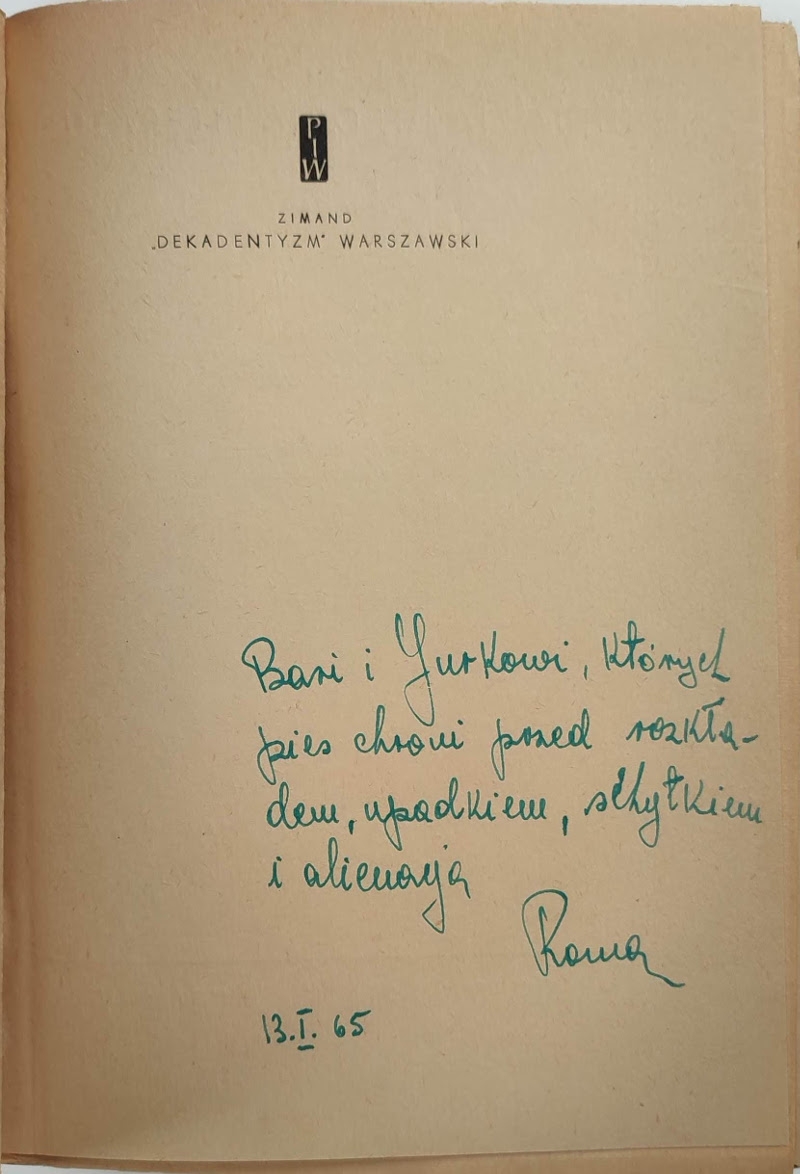 P
I
W
ZIMAND
„DEKADENTYZM" WARSZAWSKI
Basi i Jurkowi, których
pies chroni przed rozkła-
dem, upadkiem, schyłkiem
i alienacją
Roman
13.I.65